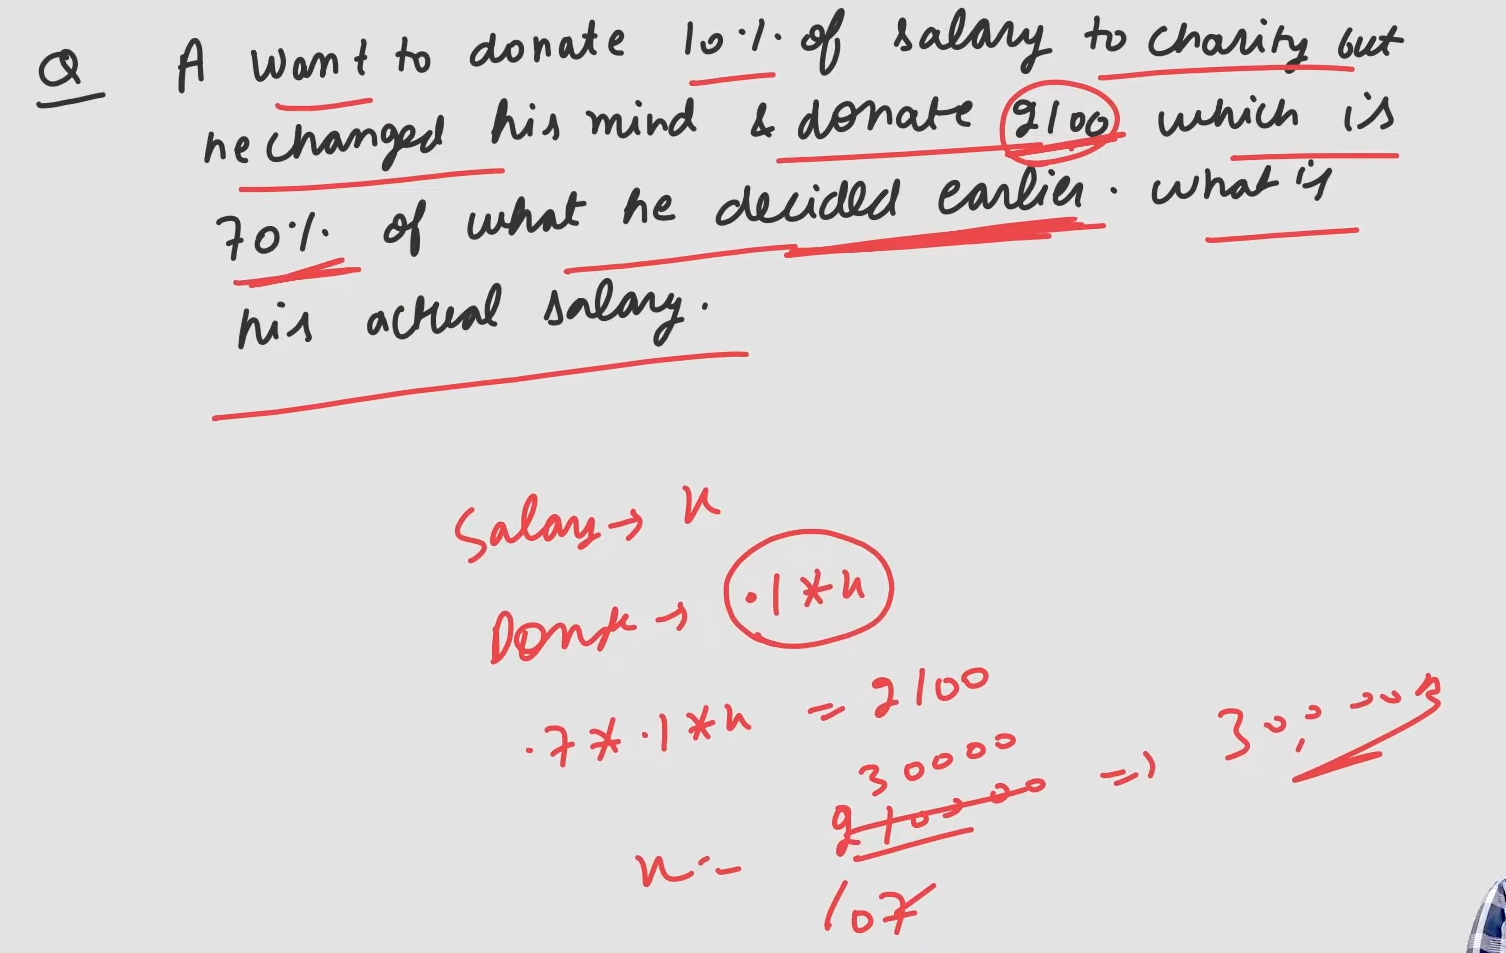 Q A want to donate 10% of salary to charity but
he changed his mind & donate 2100 which is
70% of what he decided earlier. what is
his actual salary.
Salary → x
Donate → .1*x
.7*.1*x = 2100
30000
x = 210000 => 30,000